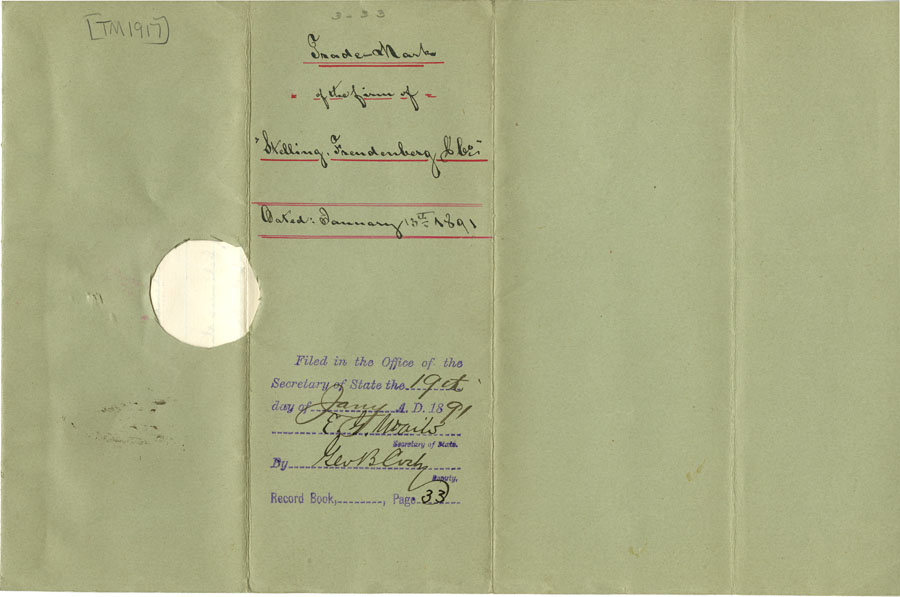 [TM1917]
3-33
Trade-Mark
of the firm of
"Skelling, Freudenberg & Co."
Dated: January 15th 1891
Filed in the Office of the
Secretary of State the 19th
day of Jany A. D. 1891
E. G. Waite
Secretary of State.
By Geo B Cosby
Deputy.
Record Book, , Page 33